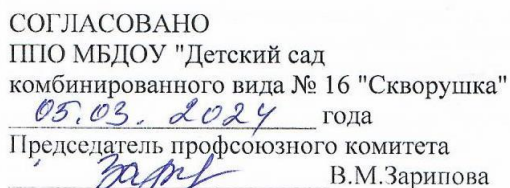 СОГЛАСОВАНО
ППО МБДОУ "Детский сад
комбинированного вида № 16 "Скворушка"
05.03. 2024 года
Председатель профсоюзного комитета
В.М.Зарипова